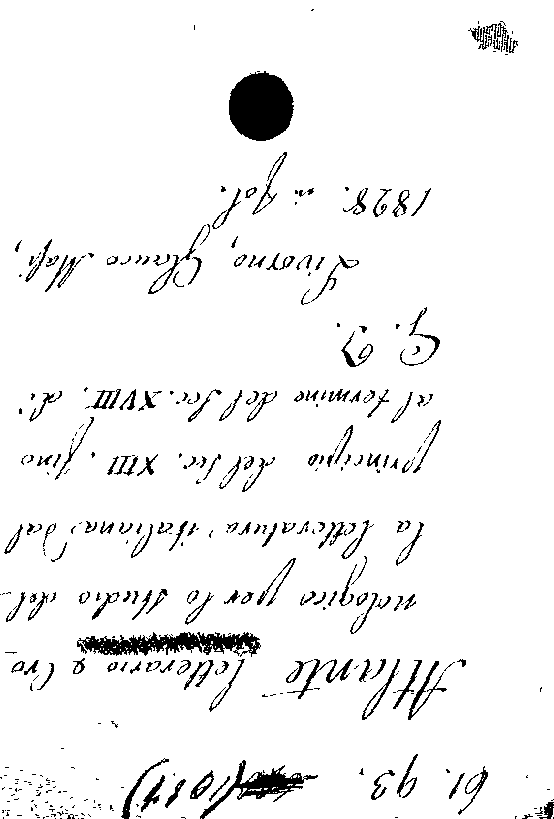 61. 93.
Atlante letterario e Cro-
nologico per lo studio del-
la letteratura italiana dal
principio del Sec. XIII. fino
al termine del Sec. XVIII. di
Livorno, Glauco Masi,
1828. in fol.